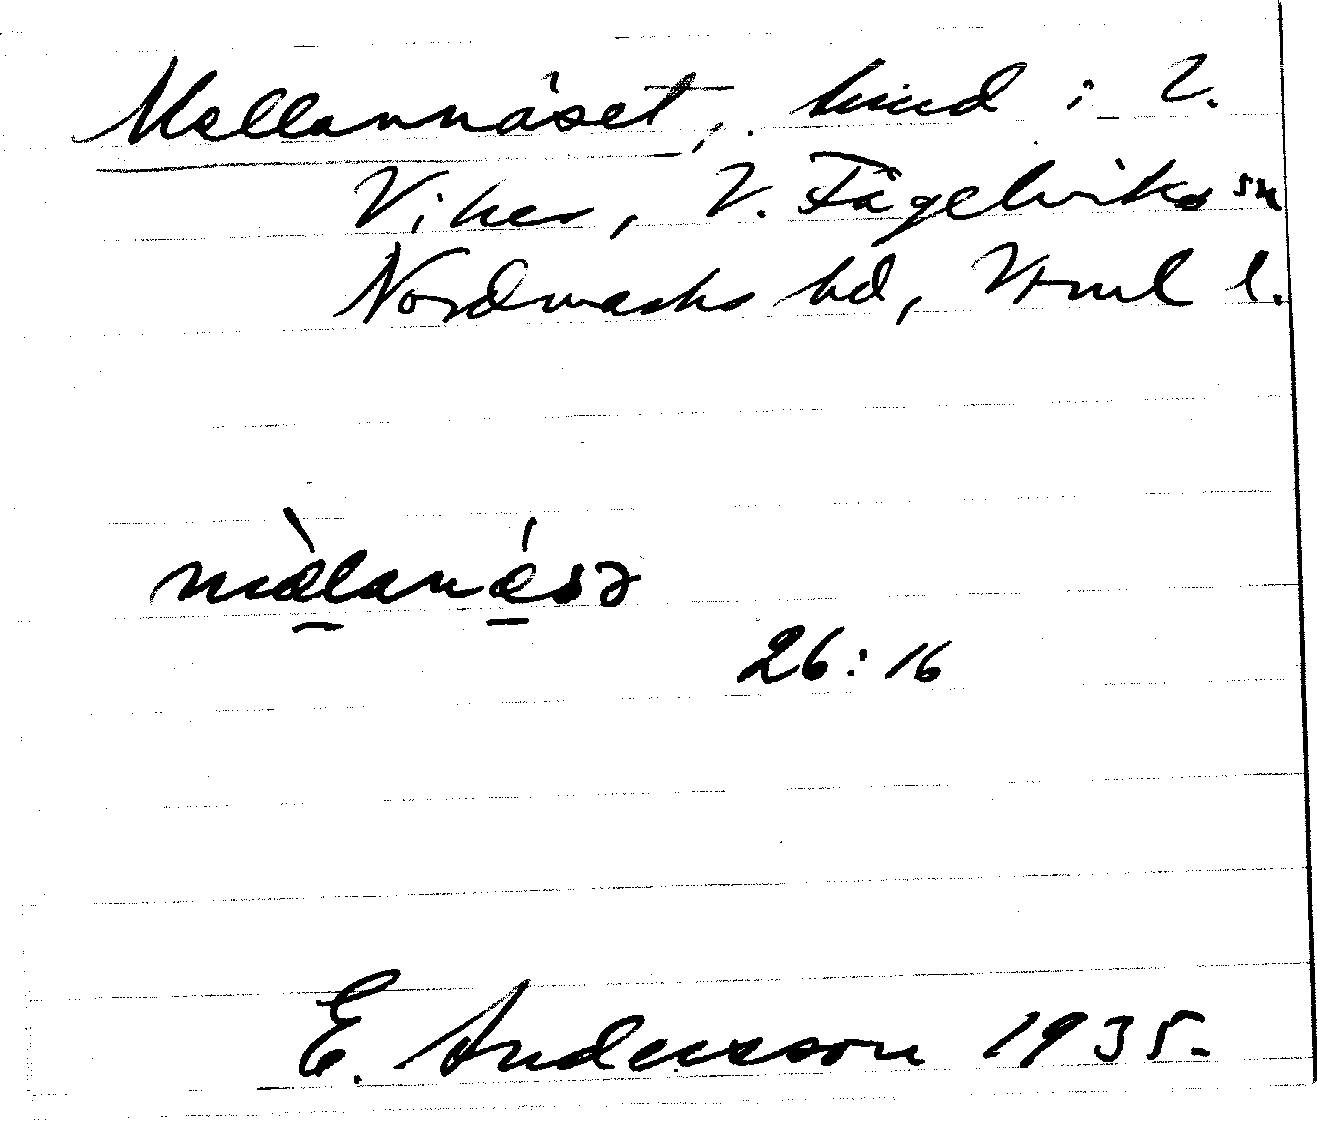 Mellannäset, hmd i V.
Viker, V. Fågelviks sn
Nordmarks hd, Vrml l.
mälanäsə
26:16
E. Andersson 1935.